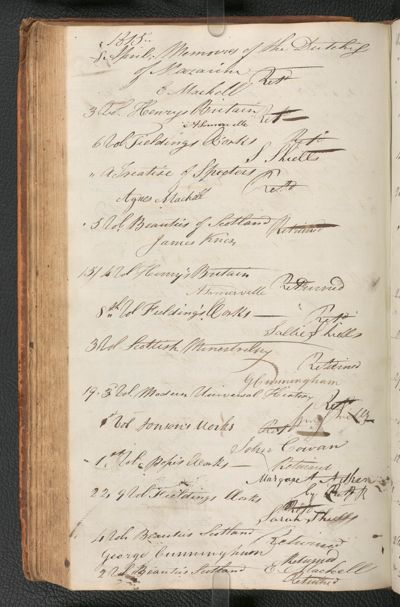 1813
8 April, Memoirs of the Dutchess
of Mazarine Retd
E Mackell
3 Vol. Henrys Britain Retd
A Somerville
6 Vol Fieldings Works Retd
S Shiells
" A Treatise of Specters Retd
Agnes Mackell
" 5 Vol Beauties of Scotland Returned
James Knox
13/ 4 Vol Henry's Britain
A Somerville Returned
8th Vol Fielding's Works — Retd
Sallie Shiells
3 Vol Scottish Minstrelsy
Returned
G Cunningham
17. 5 Vol Modern Universal History
Retd
Vol Works
John Cowan
1st Vol Popes Works — Returned
Margaret Aitken
by Retd
22 9 Vol Fieldings Works
Retd
Sarah Shiells
4 Vol Beauties Scotland
George Cunningham Returned
2 Vol Beauties Scotland Returned
E Mackell
Returned